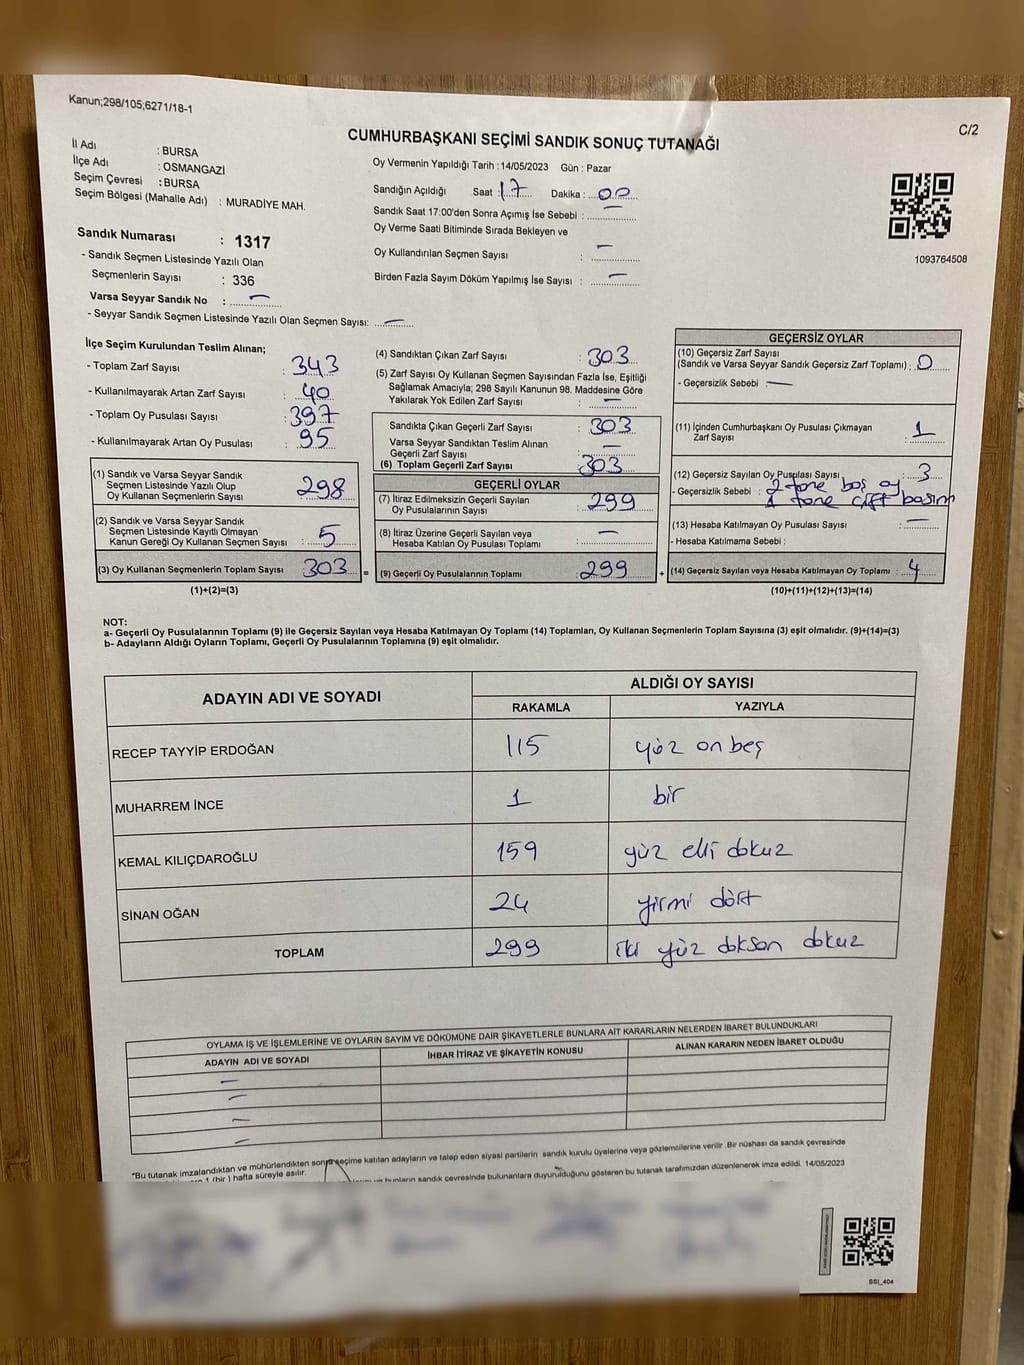 Kanun;298/105;6271/18-1
C/2
CUMHURBAŞKANI SEÇİMİ SANDIK SONUÇ TUTANAĞI
İl Adı : BURSA
İlçe Adı : OSMANGAZİ
Seçim Çevresi : BURSA
Seçim Bölgesi (Mahalle Adı) : MURADİYE MAH.
Oy Vermenin Yapıldığı Tarih : 14/05/2023 Gün : Pazar
Sandığın Açıldığı Saat : 17 Dakika : 00
Sandık Saat 17:00'den Sonra Açımış İse Sebebi : —
Oy Verme Saati Bitiminde Sırada Bekleyen ve
Oy Kullandırılan Seçmen Sayısı : —
Birden Fazla Sayım Döküm Yapılmış İse Sayısı : —
1093764508
Sandık Numarası : 1317
- Sandık Seçmen Listesinde Yazılı Olan
Seçmenlerin Sayısı : 336
Varsa Seyyar Sandık No : —
- Seyyar Sandık Seçmen Listesinde Yazılı Olan Seçmen Sayısı: —
İlçe Seçim Kurulundan Teslim Alınan;
- Toplam Zarf Sayısı : 343
- Kullanılmayarak Artan Zarf Sayısı : 40
- Toplam Oy Pusulası Sayısı : 397
- Kullanılmayarak Artan Oy Pusulası : 95
(1) Sandık ve Varsa Seyyar Sandık
Seçmen Listesinde Yazılı Olup
Oy Kullanan Seçmenlerin Sayısı : 298
(2) Sandık ve Varsa Seyyar Sandık
Seçmen Listesinde Kayıtlı Olmayan
Kanun Gereği Oy Kullanan Seçmen Sayısı : 5
(3) Oy Kullanan Seçmenlerin Toplam Sayısı : 303
(1)+(2)=(3)
=
(4) Sandıktan Çıkan Zarf Sayısı : 303
(5) Zarf Sayısı Oy Kullanan Seçmen Sayısından Fazla İse, Eşitliği
Sağlamak Amacıyla; 298 Sayılı Kanunun 98. Maddesine Göre
Yakılarak Yok Edilen Zarf Sayısı : —
Sandıkta Çıkan Geçerli Zarf Sayısı : 303
Varsa Seyyar Sandıktan Teslim Alınan
Geçerli Zarf Sayısı : —
(6) Toplam Geçerli Zarf Sayısı : 303
GEÇERLİ OYLAR
(7) İtiraz Edilmeksizin Geçerli Sayılan
Oy Pusulalarının Sayısı : 299
(8) İtiraz Üzerine Geçerli Sayılan veya
Hesaba Katılan Oy Pusulası Toplamı : —
(9) Geçerli Oy Pusulalarının Toplamı : 299
+
GEÇERSİZ OYLAR
(10) Geçersiz Zarf Sayısı
(Sandık ve Varsa Seyyar Sandık Geçersiz Zarf Toplamı) : 0
- Geçersizlik Sebebi : —
(11) İçinden Cumhurbaşkanı Oy Pusulası Çıkmayan
Zarf Sayısı : 1
(12) Geçersiz Sayılan Oy Pusulası Sayısı : 3
- Geçersizlik Sebebi : 2 tane boş oy
1 tane çift basım
(13) Hesaba Katılmayan Oy Pusulası Sayısı : —
- Hesaba Katılmama Sebebi :
(14) Geçersiz Sayılan veya Hesaba Katılmayan Oy Toplamı : 4
(10)+(11)+(12)+(13)=(14)
NOT:
a- Geçerli Oy Pusulalarının Toplamı (9) ile Geçersiz Sayılan veya Hesaba Katılmayan Oy Toplamı (14) Toplamları, Oy Kullanan Seçmenlerin Toplam Sayısına (3) eşit olmalıdır. (9)+(14)=(3)
b- Adayların Aldığı Oyların Toplamı, Geçerli Oy Pusulalarının Toplamına (9) eşit olmalıdır.
ADAYIN ADI VE SOYADI ALDIĞI OY SAYISI
RAKAMLA YAZIYLA
RECEP TAYYİP ERDOĞAN 115 yüz on beş
MUHARREM İNCE 1 bir
KEMAL KILIÇDAROĞLU 159 yüz elli dokuz
SİNAN OĞAN 24 yirmi dört
TOPLAM 299 iki yüz doksan dokuz
OYLAMA İŞ VE İŞLEMLERİNE VE OYLARIN SAYIM VE DÖKÜMÜNE DAİR ŞİKAYETLERLE BUNLARA AİT KARARLARIN NELERDEN İBARET BULUNDUKLARI
ADAYIN ADI VE SOYADI İHBAR İTİRAZ VE ŞİKAYETİN KONUSU ALINAN KARARIN NEDEN İBARET OLDUĞU
—
—
—
—
*Bu tutanak imzalandıktan ve mühürlendikten sonra seçime katılan adayların ve talep eden siyasi partilerin sandık kurulu üyelerine veya gözlemcilerine verilir .Bir nüshası da sandık çevresinde
1 (bir ) hafta süreyle asılır.
bunların sandık çevresinde bulunanlara duyurulduğunu gösteren bu tutanak tarafımızdan düzenlenerek imza edildi. 14/05/2023
SSI_404